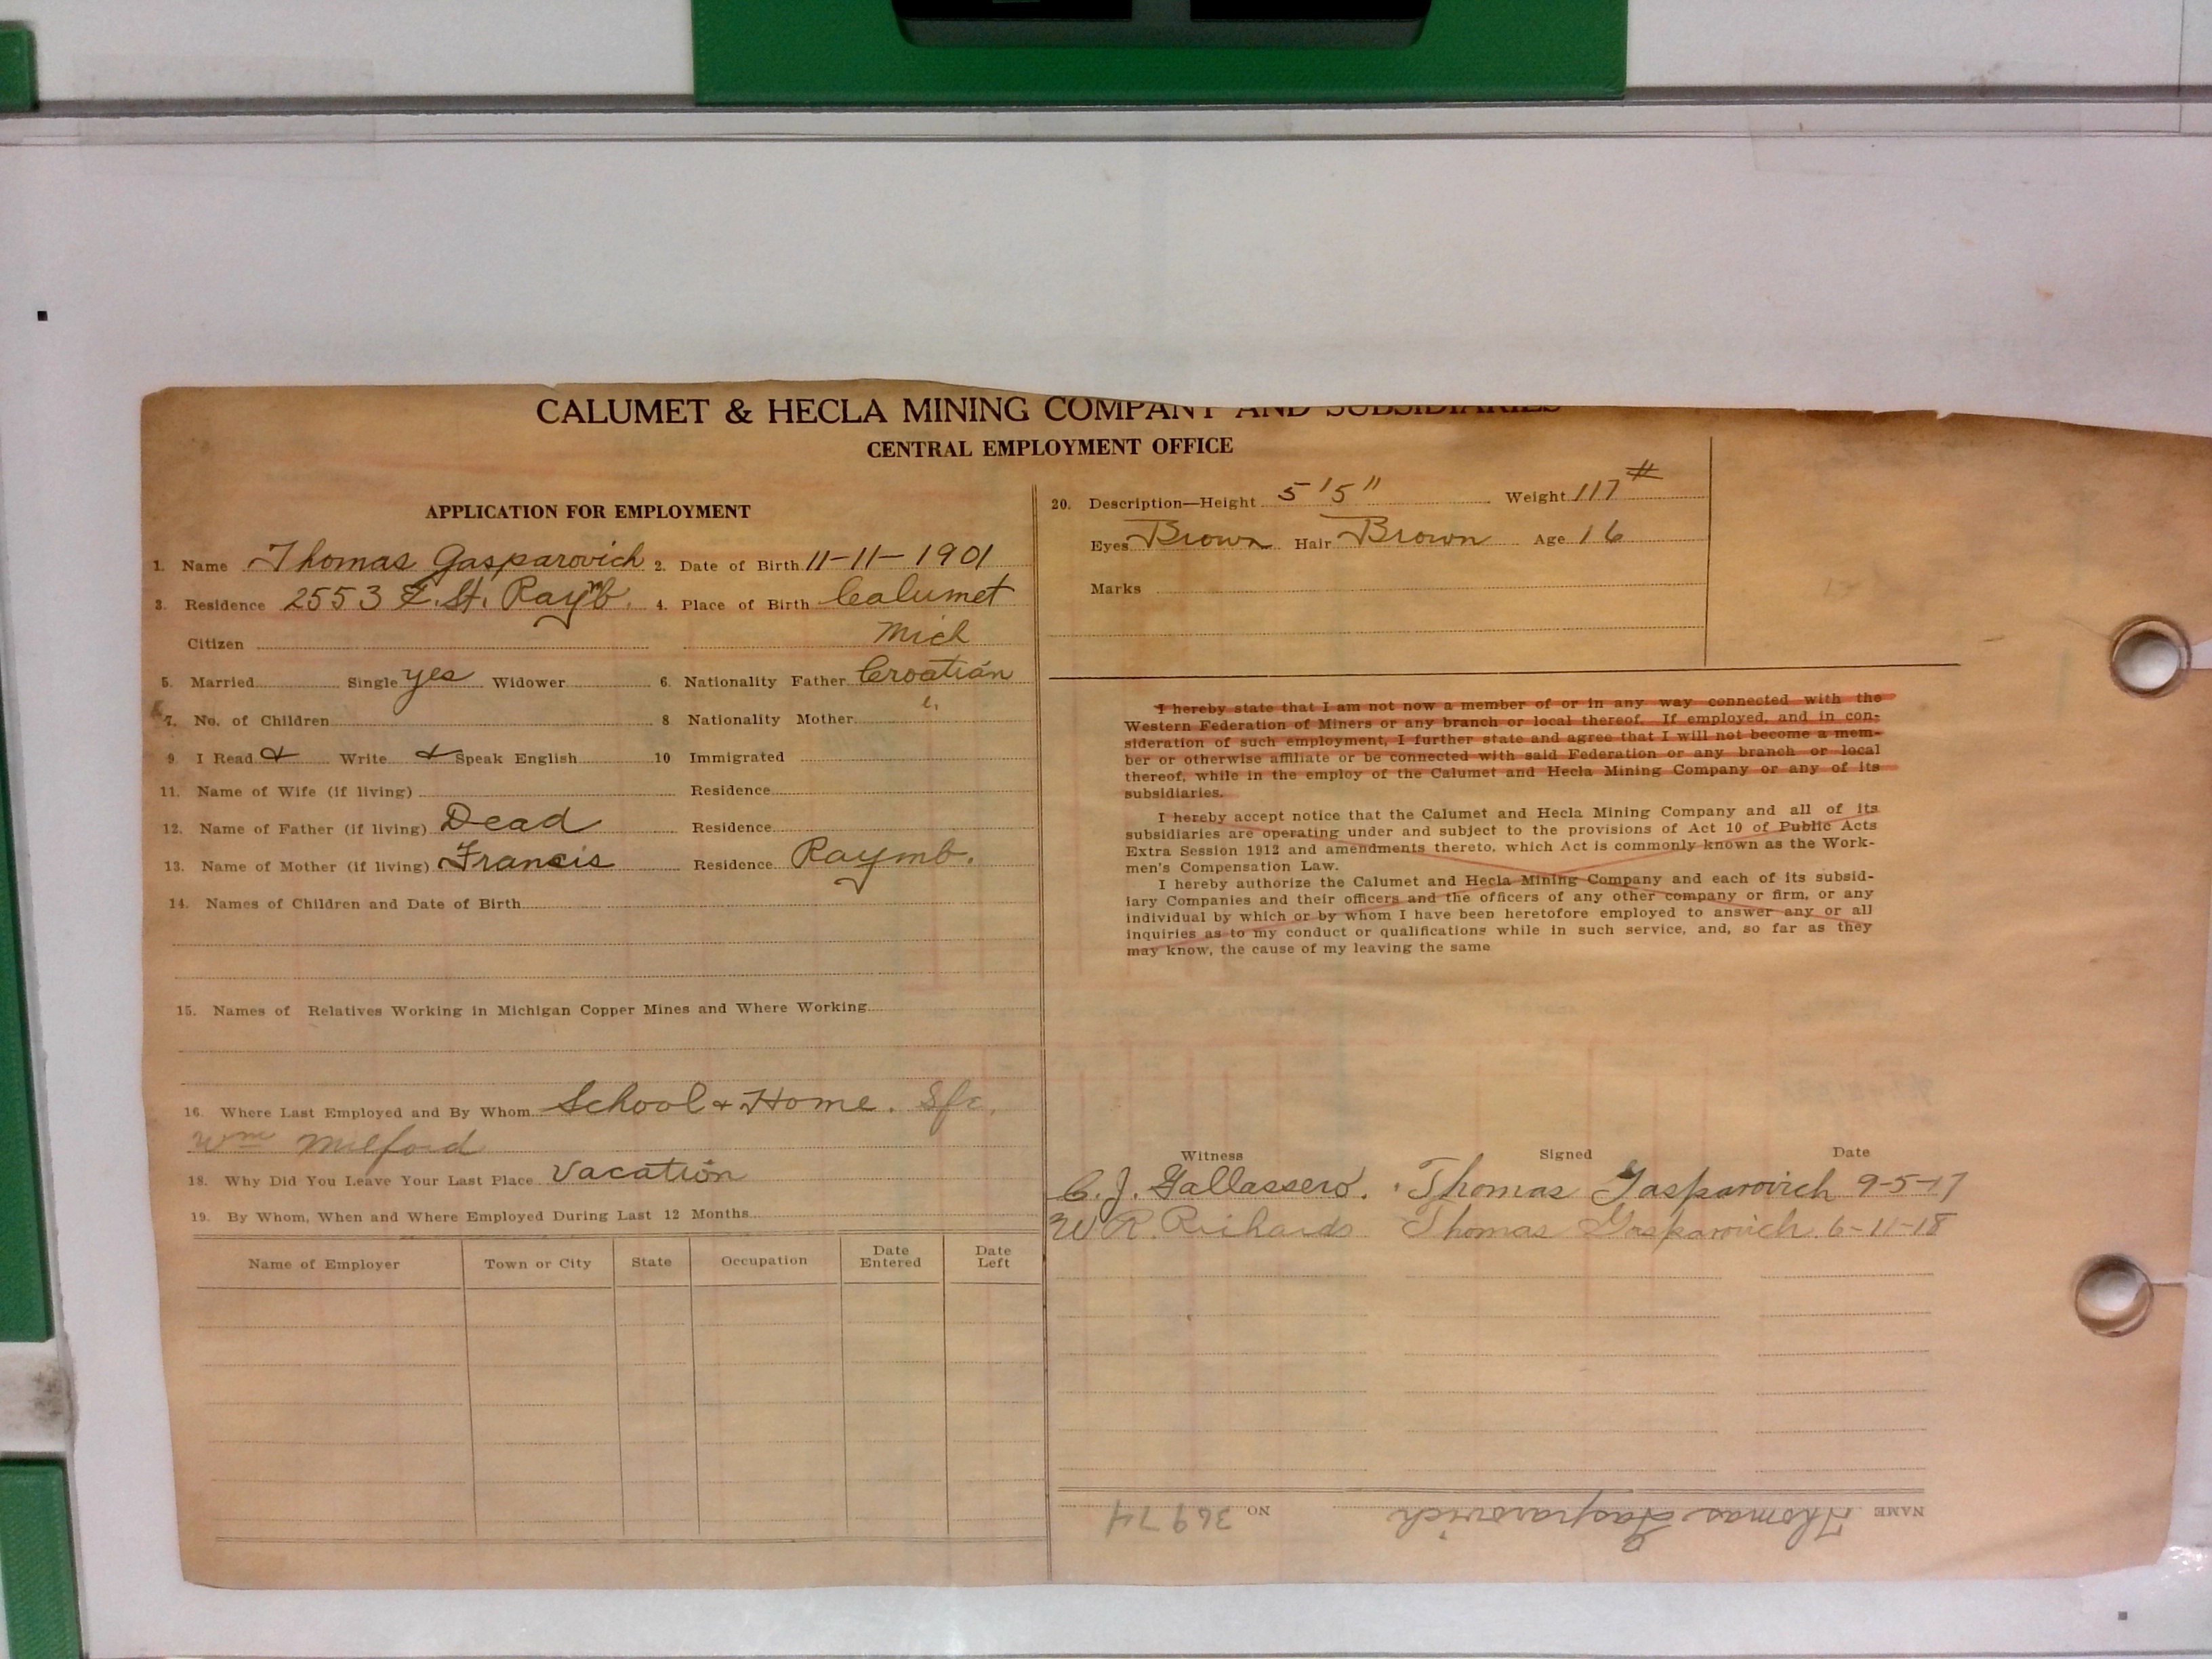 CALUMET & HECLA MINING COMPANY AND SUBSIDIARIES
CENTRAL EMPLOYMENT OFFICE
APPLICATION FOR EMPLOYMENT
1. Name Thomas Gasparovich 2. Date of Birth 11-11-1901
3. Residence 2553 E. St. Raymb. 4. Place of Birth Calumet
Citizen Mich
5. Married Single yes Widower 6. Nationality Father Croatian
7. No. of Children 8 Nationality Mother "
9 I Read & Write & Speak English 10 Immigrated
11. Name of Wife (if living) Residence
12. Name of Father (if living) Dead Residence
13. Name of Mother (if living) Francis Residence Raymb.
14. Names of Children and Date of Birth
15. Names of Relatives Working in Michigan Copper Mines and Where Working
16. Where Last Employed and By Whom School & Home. Sfc.
Wm Milford
18. Why Did You Leave Your Last Place Vacation
19. By Whom, When and Where Employed During Last 12 Months
Name of Employer Town or City State Occupation Date Entered Date Left
20. Description—Height 5'5" Weight 117#
Eyes Brown Hair Brown Age 16
Marks
I hereby state that I am not now a member of or in any way connected with the
Western Federation of Miners or any branch or local thereof. If employed, and in con-
sideration of such employment, I further state and agree that I will not become a mem-
ber or otherwise affiliate or be connected with said Federation or any branch or local
thereof, while in the employ of the Calumet and Hecla Mining Company or any of its
subsidiaries.
I hereby accept notice that the Calumet and Hecla Mining Company and all of its
subsidiaries are operating under and subject to the provisions of Act 10 of Public Acts
Extra Session 1912 and amendments thereto, which Act is commonly known as the Work-
men's Compensation Law.
I hereby authorize the Calumet and Hecla Mining Company and each of its subsid-
iary Companies and their officers and the officers of any other company or firm, or any
individual by which or by whom I have been heretofore employed to answer any or all
inquiries as to my conduct or qualifications while in such service, and, so far as they
may know, the cause of my leaving the same
Witness Signed Date
C. J. Gallassero. Thomas Gasparovich 9-5-17
W R. Richards Thomas Gasparovich. 6-11-18
NAME Thomas Gasparovich NO 36974